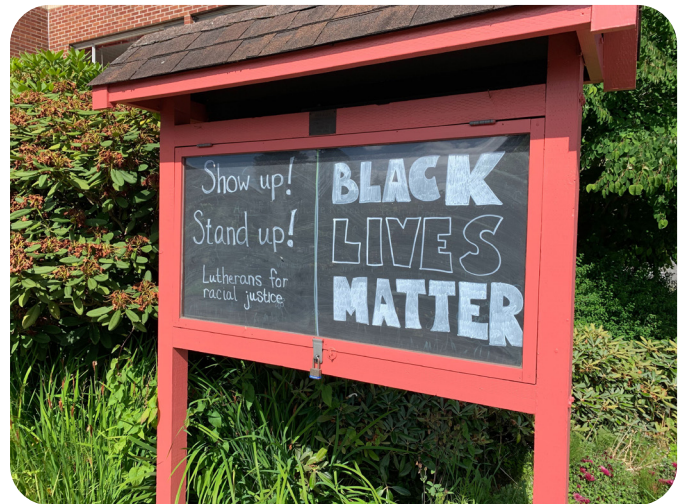 Show up!
Stand up!
Lutherans for
racial justice
BLACK
LIVES
MATTER